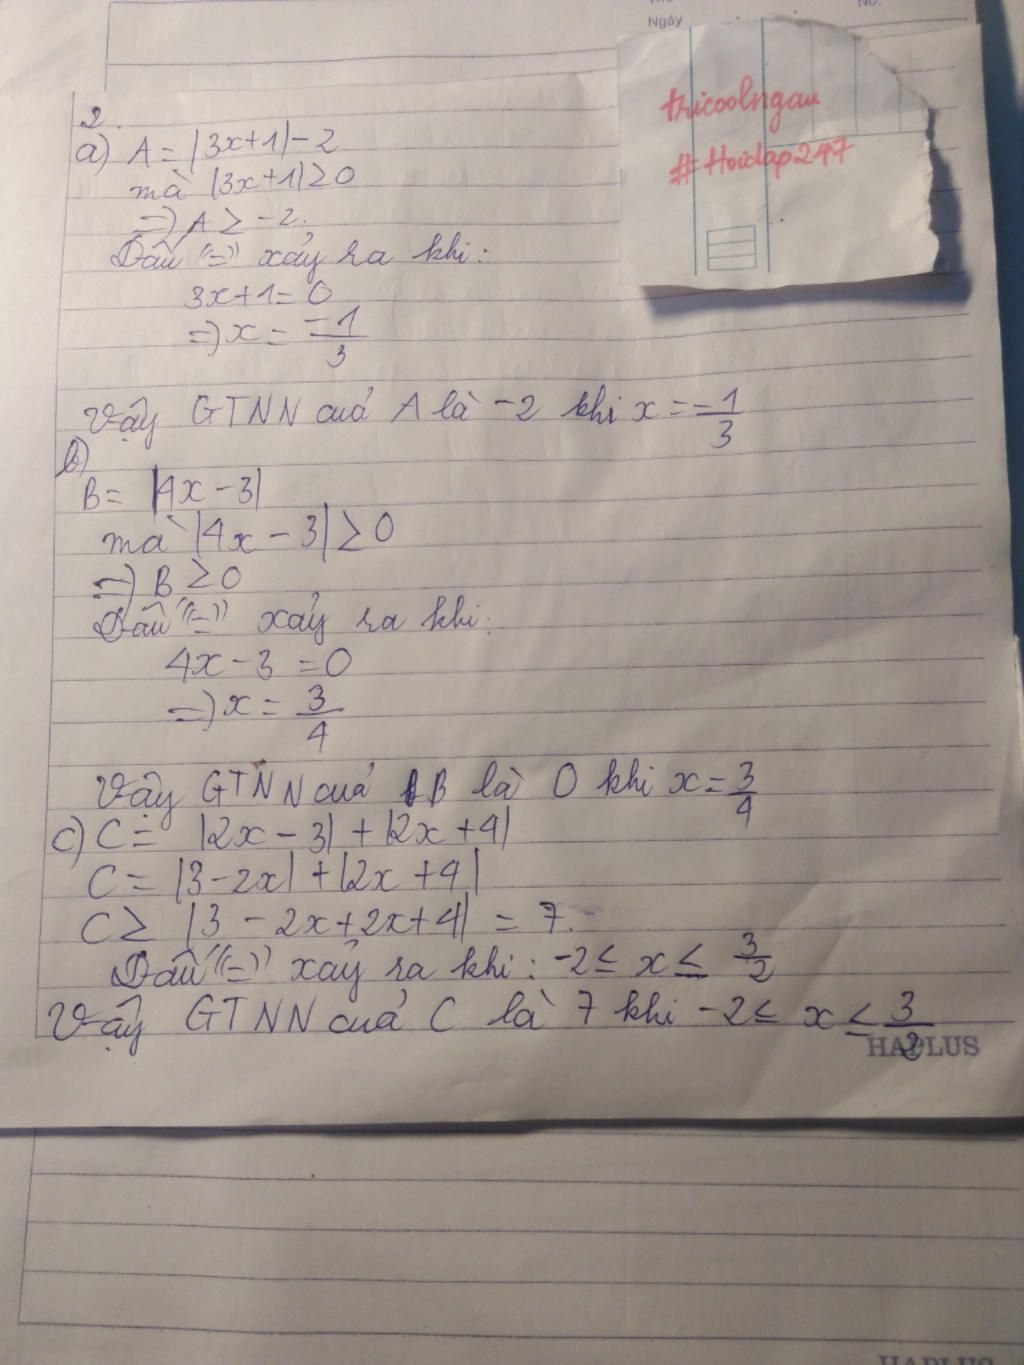 Ngày
No.
thicoolngau
#Hoidap247
2.
a) A = |3x+1| - 2
mà |3x+1| ≥ 0
=> A ≥ -2.
Dấu "=" xảy ra khi:
3x+1 = 0
=> x = -1/3
Vậy GTNN của A là -2 khi x = -1/3
b)
B = |4x - 3|
mà |4x - 3| ≥ 0
=> B ≥ 0
Dấu "=" xảy ra khi:
4x - 3 = 0
=> x = 3/4
Vậy GTNN của B là 0 khi x = 3/4
c) C = |2x - 3| + |2x + 4|
C = |3 - 2x| + |2x + 4|
C ≥ |3 - 2x + 2x + 4| = 7.
Dấu "=" xảy ra khi: -2 ≤ x ≤ 3/2
Vậy GTNN của C là 7 khi -2 ≤ x ≤ 3/2
HAPLUS
HAPLUS